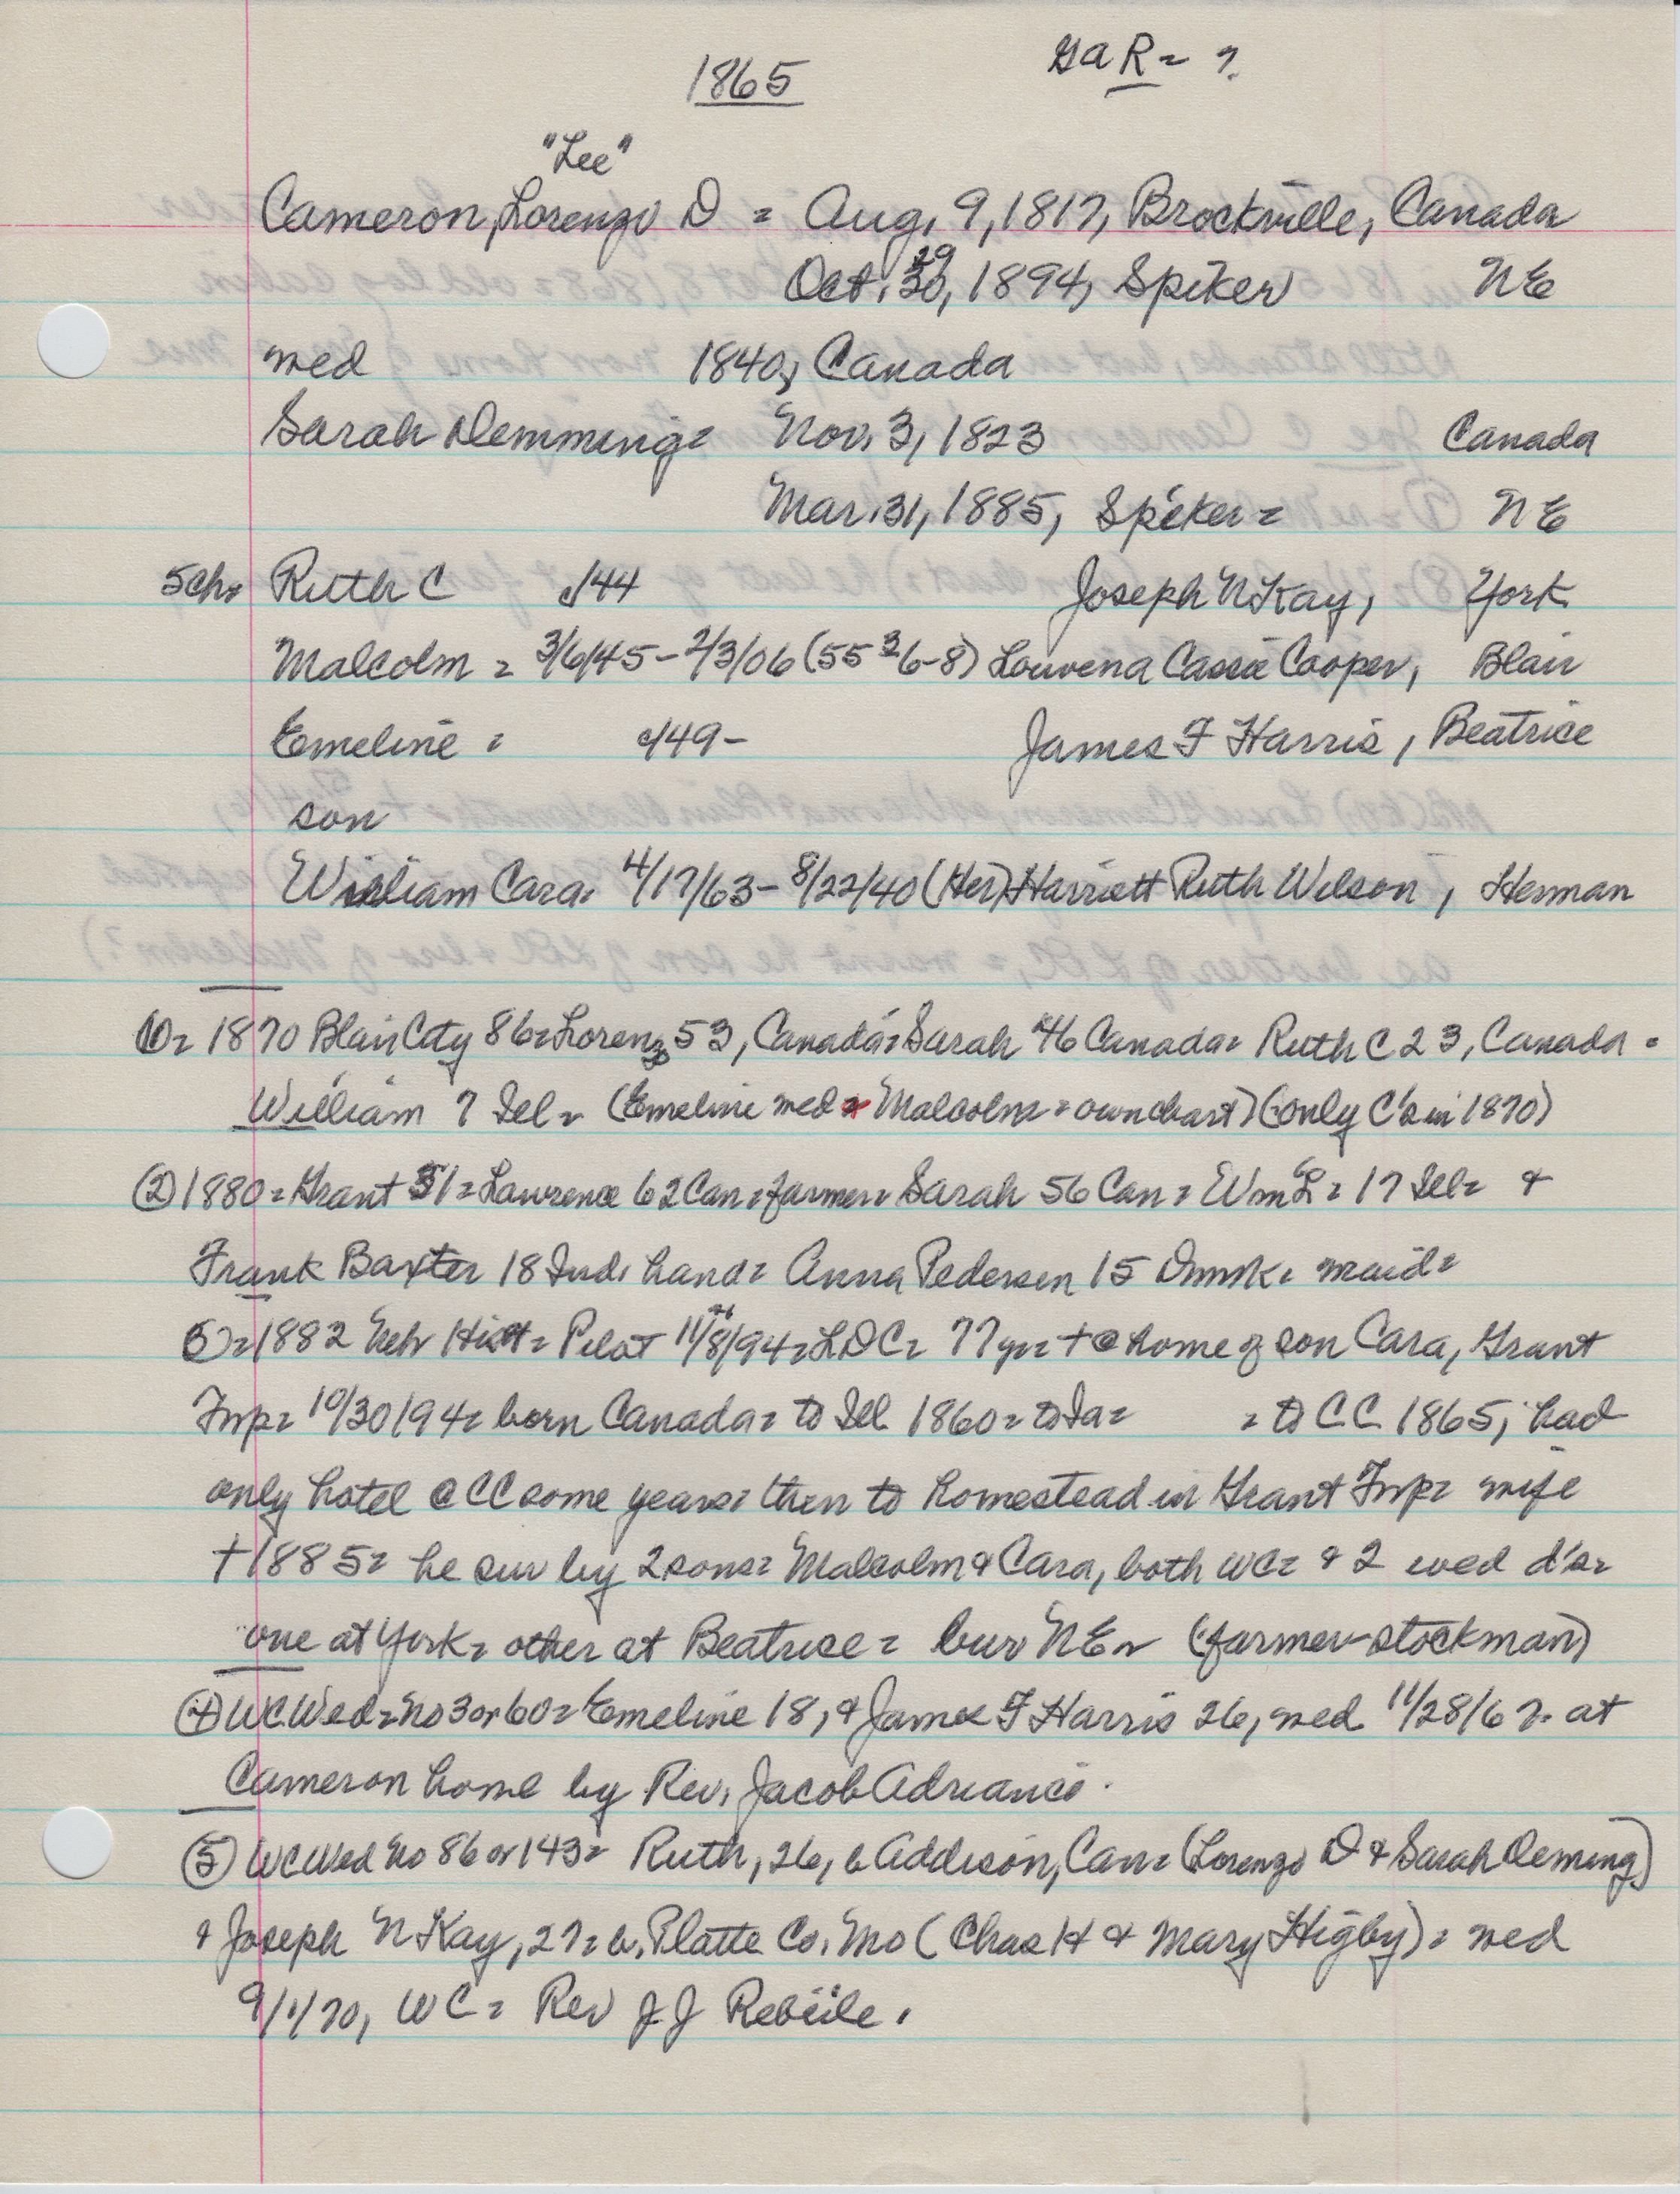 1865
GAR = ?
"Lee"
Cameron, Lorenzo D = Aug, 9, 1817, Brockville, Canada
Oct, 30, 1894, Spiker NE
29
wed 1840, Canada
Sarah Demming = Nov, 3, 1823 Canada
Mar. 31, 1885, Spiker = NE
5ch= Ruth C c/44 Joseph N Kay, York
Malcolm = 3/6/45 - 2/3/06 (55 36-8) Louvena Cassie Cooper, Blair
Emeline = c/49 - James F Harris, Beatrice
son
William Cara= 4/17/63 - 8/22/40 (Her) Harriett Ruth Wilson, Herman
①= 1870 Blair City 86= Lorenzo 53, Canada= Sarah 46 Canada= Ruth C 23, Canada =
William 7 Ill = (Emeline wed = Malcolm = own chart) (only C's in 1870)
② 1880 = Grant 51 = Lawrence 62 Can = farmer = Sarah 56 Can = Wm L = 17 Ill = &
Frank Baxter 18 Ind. hand = Anna Pedersen 15 Dnmk = maid =
= 1882 Nebr Hist = Pilot 11/8/94 = LDC = 77 yr = + @ home of son Cara, Grant
Twp = 10/30/94 = born Canada = to Ill 1860 = to Ia = = to CC 1865, had
only hotel @ CC some years = then to homestead in Grant Twp = wife
+ 1885 = he sur by 2 sons = Malcolm & Cara, both WC = & 2 wed d's =
one at York = other at Beatrice = bur NE = (farmer-stockman)
④ WC Wed = No 3 or 60 = Emeline 18, & James F Harris 26, wed 11/28/67. at
Cameron home by Rev. Jacob Adriance.
⑤ WC Wed No 86 or 143 = Ruth, 26, b Addison, Can = (Lorenzo D & Sarah Deming)
& Joseph N Kay, 27 = b. Platte Co. Mo (Chas H & Mary Higby) = wed
9/1/70, WC = Rev J J